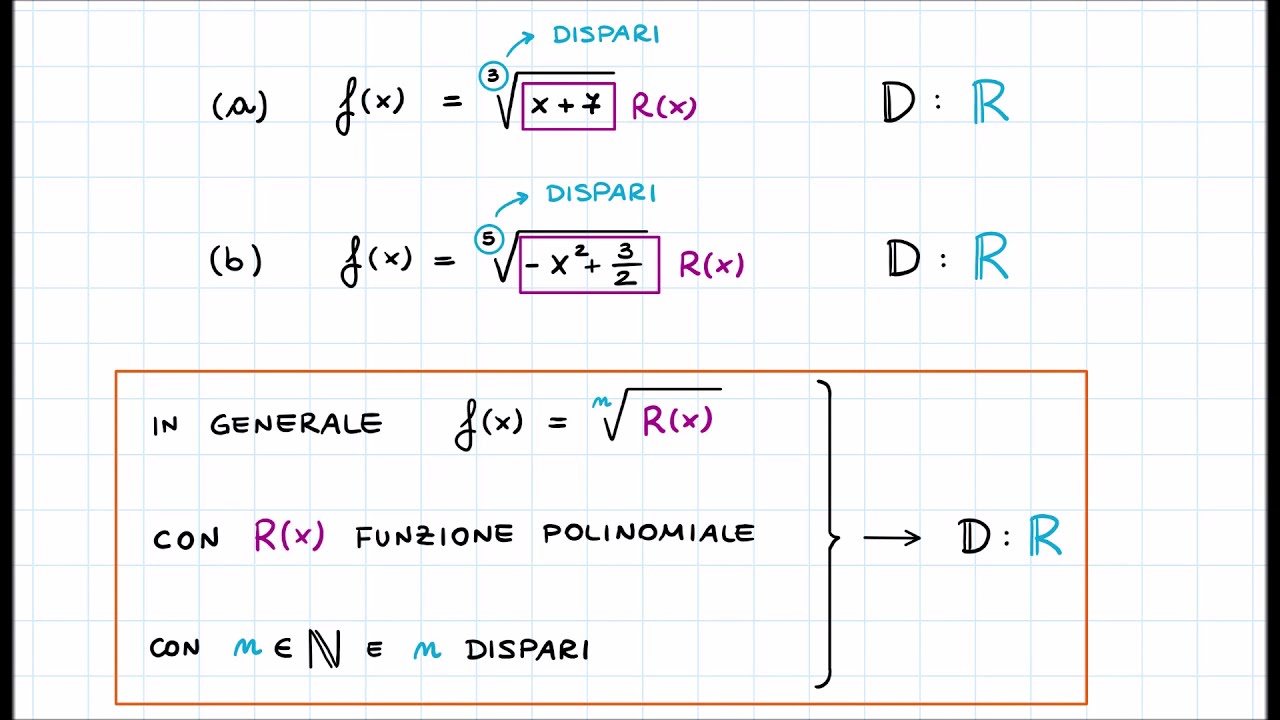 DISPARI
(a) f(x) = ∛(x + 7) R(x) D : ℝ
DISPARI
(b) f(x) = ⁵√(- x² + 3/2) R(x) D : ℝ
IN GENERALE f(x) = ⁿ√R(x)
CON R(x) FUNZIONE POLINOMIALE → D : ℝ
CON n ∈ ℕ E n DISPARI